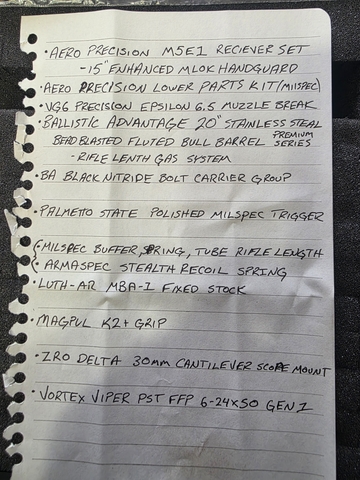 • AERO PRECISION M5E1 RECIEVER SET
- 15" ENHANCED MLOK HANDGUARD
• AERO PRECISION LOWER PARTS KIT (MILSPEC)
• VG6 PRECISION EPSILON 6.5 MUZZLE BREAK
• BALLISTIC ADVANTAGE 20" STAINLESS STEAL
BEAD BLASTED FLUTED BULL BARREL PREMIUM SERIES
- RIFLE LENTH GAS SYSTEM
• BA BLACK NITRIDE BOLT CARRIER GROUP
• PALMETTO STATE POLISHED MILSPEC TRIGGER
• MILSPEC BUFFER, SPRING, TUBE RIFLE LENGTH
• ARMASPEC STEALTH RECOIL SPRING
• LUTH-AR MBA-1 FIXED STOCK
• MAGPUL K2+ GRIP
• ZRO DELTA 30mm CANTILEVER SCOPE MOUNT
• VORTEX VIPER PST FFP 6-24x50 GEN 1